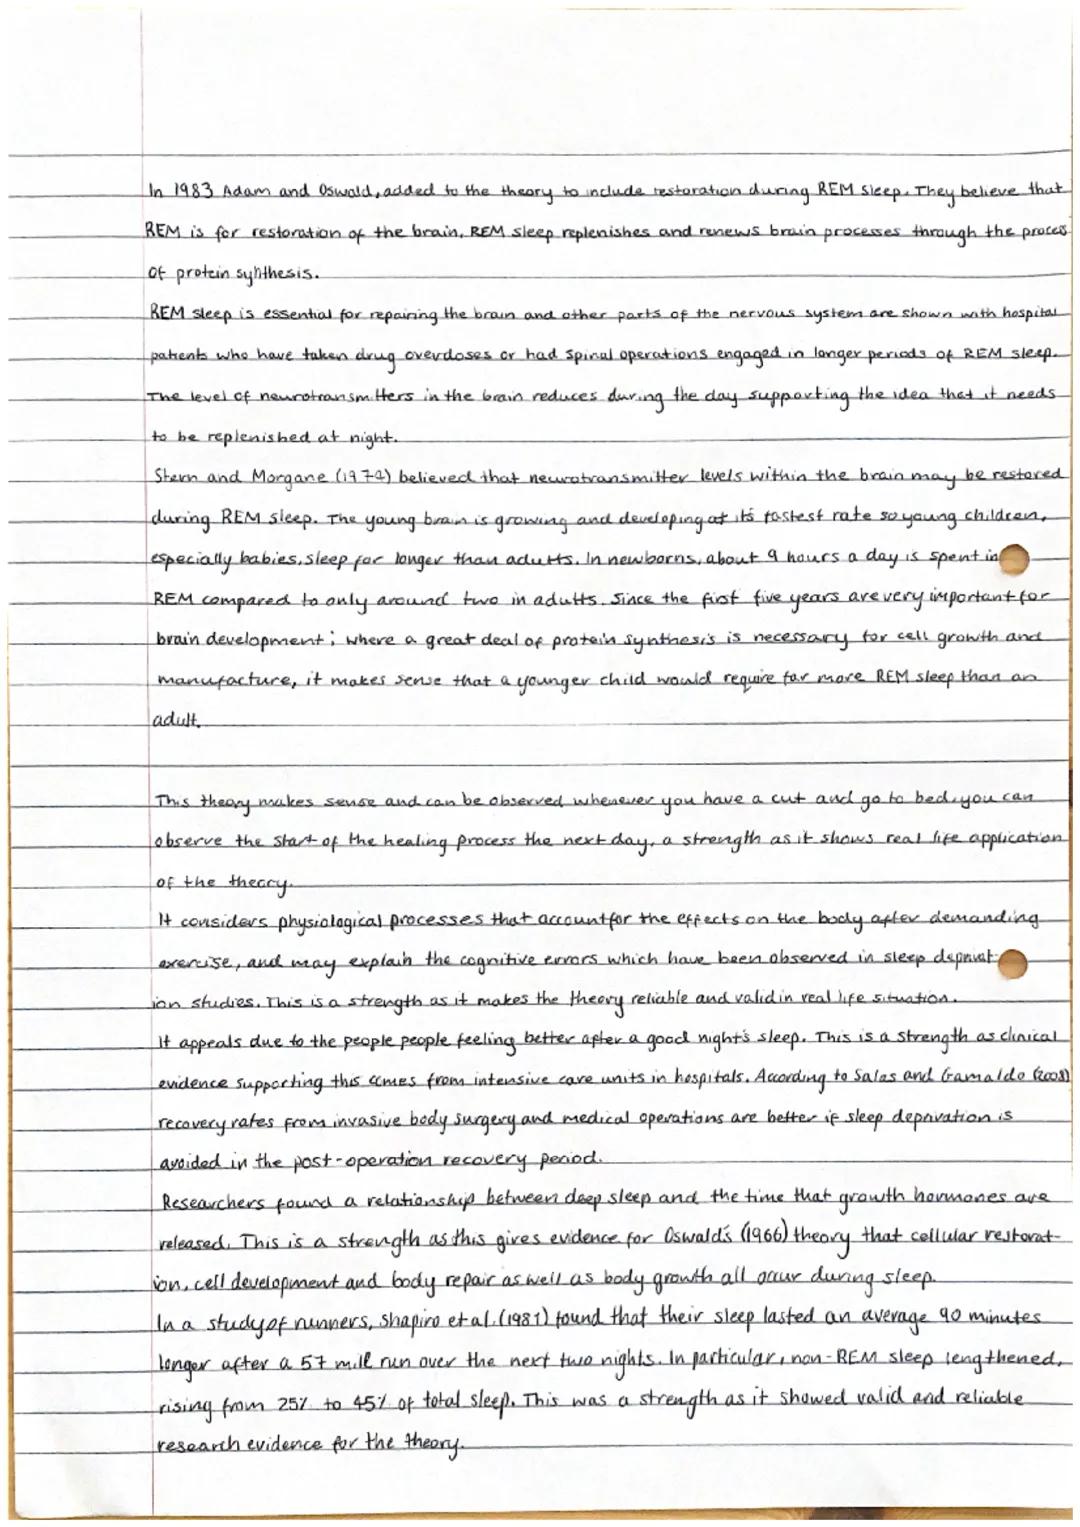 In 1983 Adam and Oswald, added to the theory to include restoration during REM sleep. They believe that
REM is for restoration of the brain, REM sleep replenishes and renews brain processes through the process
of protein synthesis.
REM sleep is essential for repairing the brain and other parts of the nervous system are shown with hospital
patients who have taken drug overdoses or had spinal operations engaged in longer periods of REM sleep.
The level of neurotransmitters in the brain reduces during the day supporting the idea that it needs
to be replenished at night.
Stern and Morgane (1974) believed that neurotransmitter levels within the brain may be restored
during REM sleep. The young brain is growing and developing at its fastest rate so young children,
especially babies, sleep for longer than adults. In newborns, about 9 hours a day is spent in
REM compared to only around two in adults. Since the first five years are very important for
brain development; where a great deal of protein synthesis is necessary for cell growth and
manufacture, it makes sense that a younger child would require far more REM sleep than an
adult.
This theory makes sense and can be observed whenever you have a cut and go to bed, you can
observe the start of the healing process the next day, a strength as it shows real life application
of the theory.
It considers physiological processes that account for the effects on the body after demanding
exercise, and may explain the cognitive errors which have been observed in sleep deprivat-
ion studies. This is a strength as it makes the theory reliable and valid in real life situation.
It appeals due to the people people feeling better after a good night's sleep. This is a strength as clinical
evidence supporting this comes from intensive care units in hospitals. According to Salas and Gamaldo (2008)
recovery rates from invasive body surgery and medical operations are better if sleep deprivation is
avoided in the post-operation recovery period.
Researchers found a relationship between deep sleep and the time that growth hormones are
released. This is a strength as this gives evidence for Oswald's (1966) theory that cellular restorat-
ion, cell development and body repair as well as body growth all occur during sleep.
In a study of runners, Shapiro et al. (1981) found that their sleep lasted an average 90 minutes
longer after a 57 mile run over the next two nights. In particular, non-REM sleep lengthened,
rising from 25% to 45% of total sleep. This was a strength as it showed valid and reliable
research evidence for the theory.